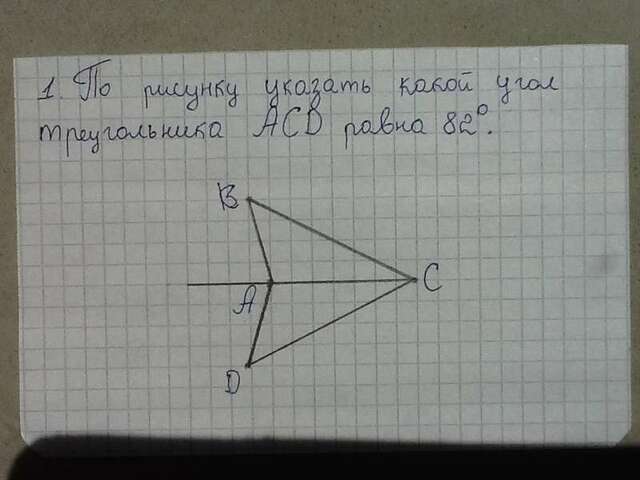 1. По рисунку указать какой угол
треугольника ACD равна 82°.
B
A
C
D